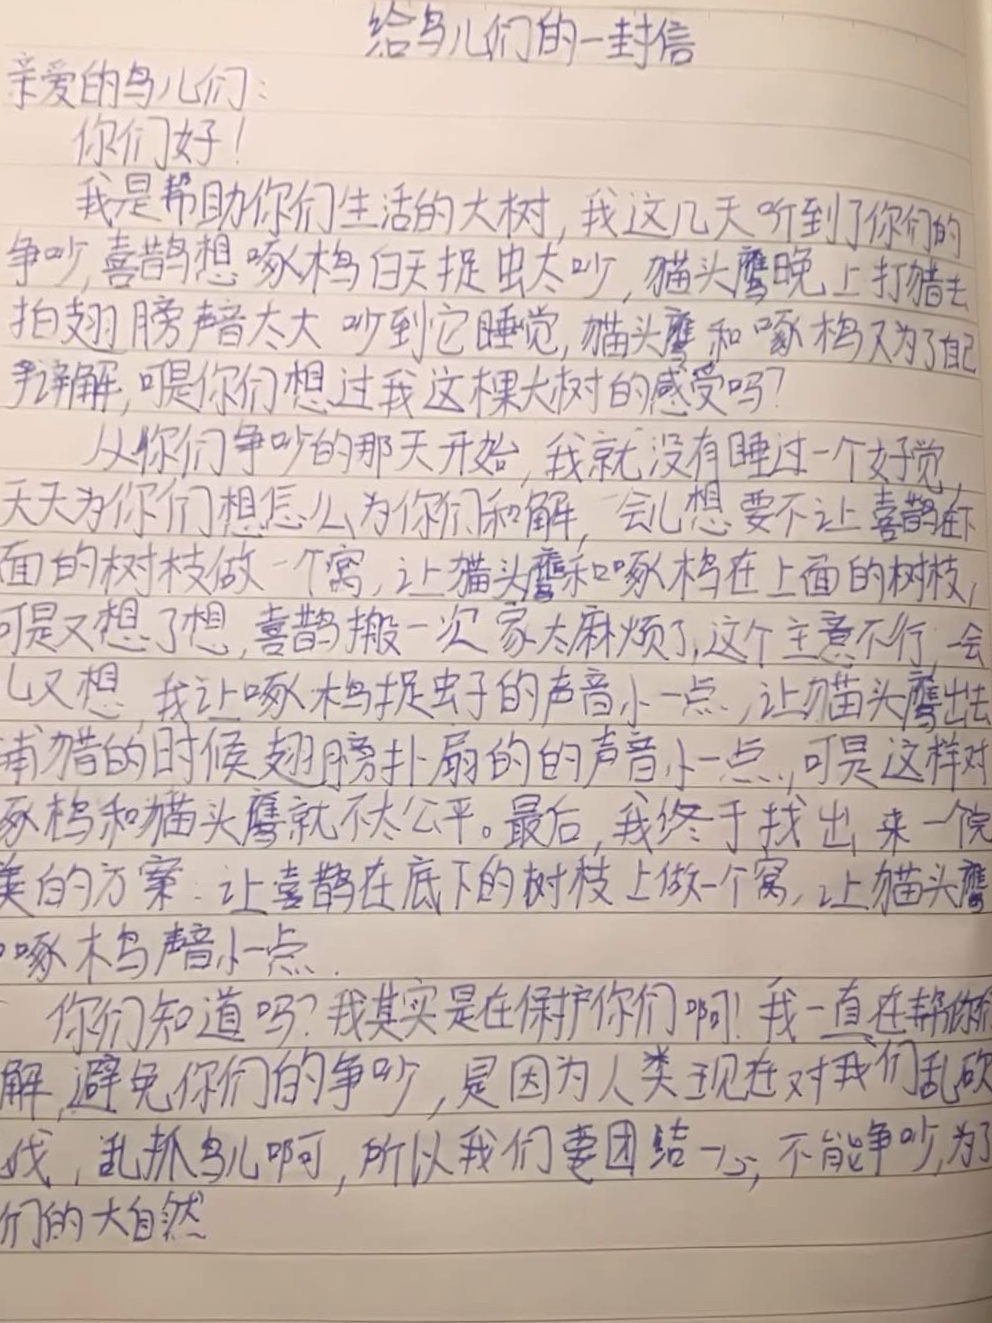 给鸟儿们的一封信
亲爱的鸟儿们:
你们好!
我是帮助你们生活的大树,我这几天听到了你们的
争吵,喜鹊想啄木鸟白天捉虫太吵,猫头鹰晚上打猎去
拍翅膀声音太大吵到它睡觉,猫头鹰和啄木鸟又为了自己
辩解,可是你们想过我这棵大树的感受吗?
从你们争吵的那天开始,我就没有睡过一个好觉,
天天为你们想怎么为你们和解,一会儿想要不让喜鹊在下
面的树枝做一个窝,让猫头鹰和啄木鸟在上面的树枝,
可是又想了想,喜鹊搬一次家太麻烦了,这个主意不行,一会
儿又想,我让啄木鸟捉虫子的声音小一点,让猫头鹰出去
捕猎的时候翅膀扑扇的的声音小一点,可是这样对
啄木鸟和猫头鹰就不太公平。最后,我终于找出来一个完
美的方案:让喜鹊在底下的树枝上做一个窝,让猫头鹰
和啄木鸟声音小一点.
你们知道吗?我其实是在保护你们啊!我一直在帮你们
解,避免你们的争吵,是因为人类现在对我们乱砍
伐,乱抓鸟儿啊,所以我们要团结一心,不能争吵,为了
们的大自然